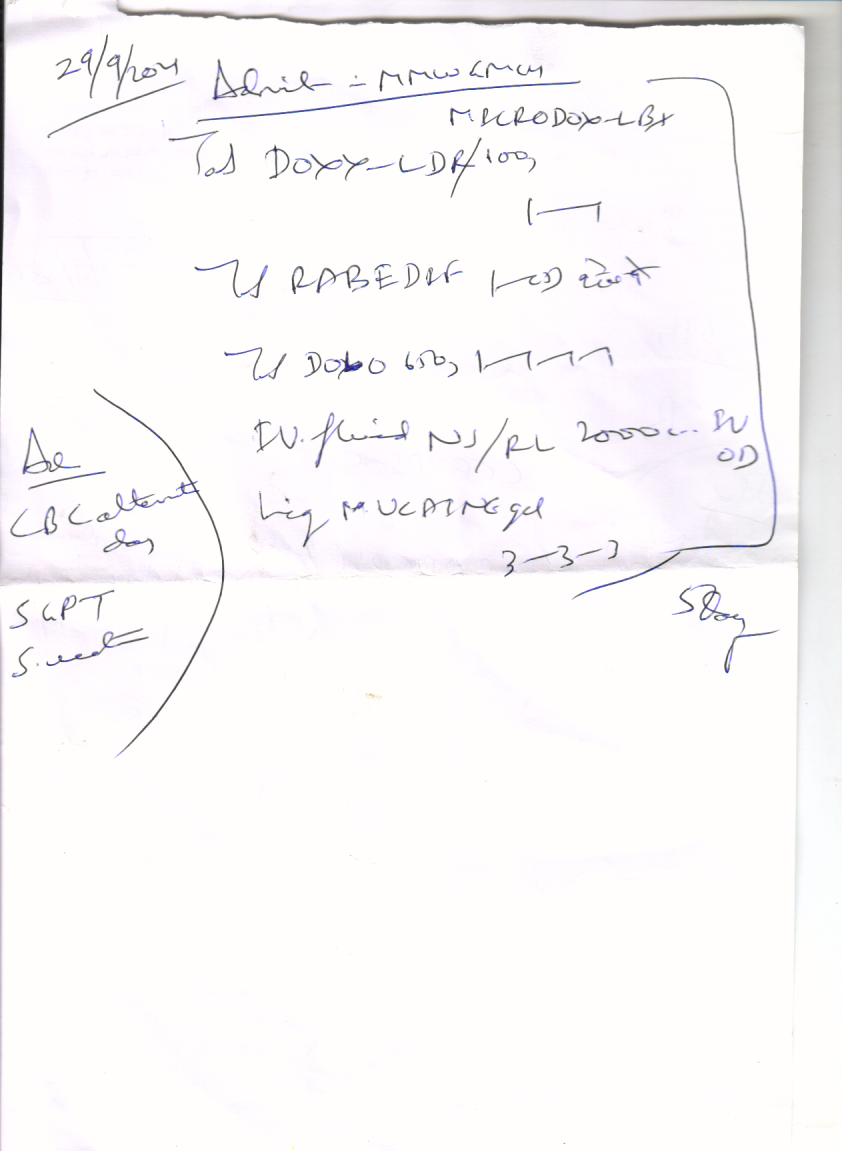 29/9/2021 Admit - MMW
MICRODOX-LBX
Tab DOXY-LDR/100
1—1
RABEDLF 1—OD
DOLO 650, 1—1—1—1
IV. fluid NS/RL 2000 IV
OD
Liq MUCAINE gel
3-3-3
5 Day
Adv
CBC alternate
day
SGPT
S.